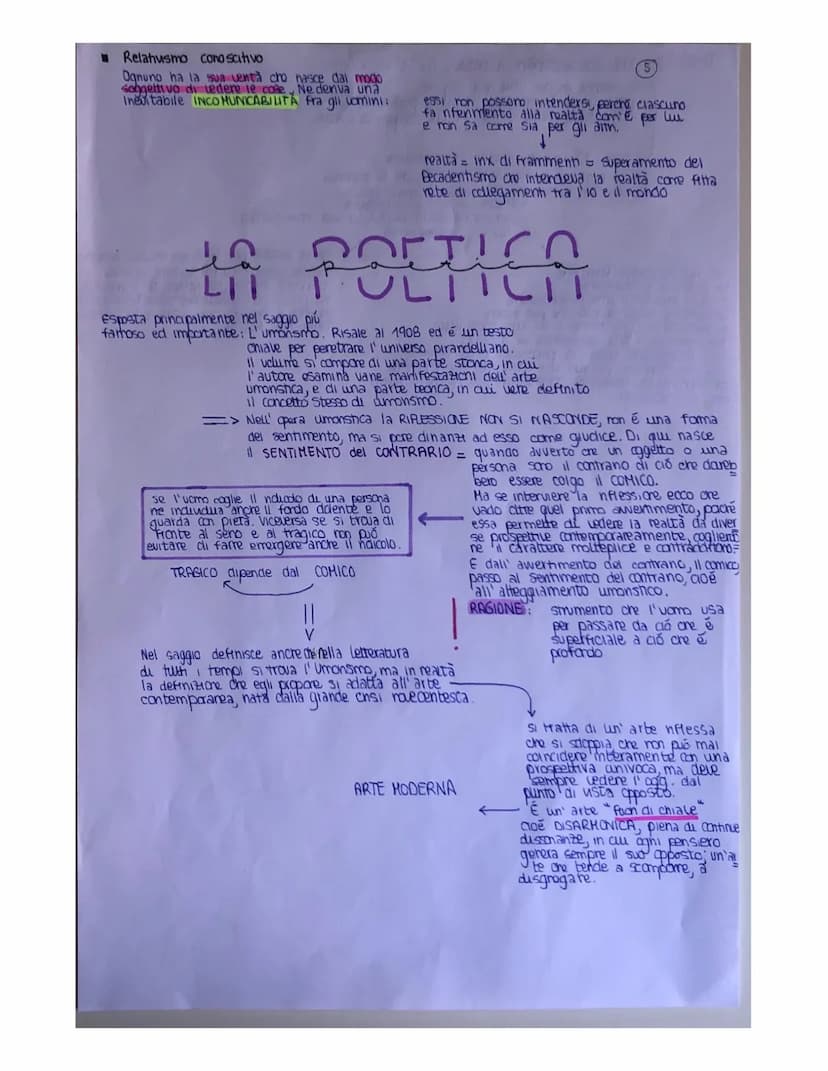 ▪ Relativismo conoscitivo
5
Ognuno ha la sua verità che nasce dal modo
soggettivo di vedere le cose. Ne deriva una
inevitabile INCOMUNICABILITÀ fra gli uomini:
essi non possono intendersi, perché ciascuno
fa riferimento alla realtà com'è per lui
e non sa come sia per gli altri.
↓
realtà = inx di frammenti = superamento del
Decadentismo che intendeva la realtà come fitta
rete di collegamenti tra l'io e il mondo
LA POETICA
la poetica
Esposta principalmente nel saggio più
famoso ed importante: L'umorismo. Risale al 1908 ed è un testo
chiave per penetrare l'universo pirandelliano.
Il volume si compone di una parte storica, in cui
l'autore esamina varie manifestazioni dell'arte
umoristica, e di una parte teorica, in cui viene definito
il concetto stesso di umorismo.
=> Nell'opera umoristica la RIFLESSIONE NON SI NASCONDE, non é una forma
del sentimento, ma si pone dinanzi ad esso come giudice. Di qui nasce
il SENTIMENTO del CONTRARIO = quando avverto che un oggetto o una
persona sono il contrario di ciò che dareb
bero essere colgo il COMICO.
Ma se interviene la riflessione ecco che
vado oltre quel primo avvertimento, poiché
essa permette di vedere la realtà da diver
se prospettive contemporaneamente, cogliend
ne il carattere molteplice e contraddittorio =
E dall'avvertimento del contrario, il comico,
passo al sentimento del contrario, cioé
all'atteggiamento umoristico.
←
se l'uomo coglie il ridicolo di una persona
ne individua anche il fondo dolente e lo
guarda con pietà. Viceversa se si trova di
fronte al serio e al tragico non può
evitare di farne emergere anche il ridicolo.
TRAGICO dipende dal COMICO
!
RAGIONE: strumento che l'uomo usa
per passare da ciò che é
superficiale a ciò che é
profondo
Nel saggio definisce anche che nella letteratura
di tutti i tempi si trova l'umorismo, ma in realtà
la definizione che egli propone si adatta all'arte
contemporanea, nata dalla grande crisi novecentesca.
si tratta di un'arte riflessa
che si sdoppia che non può mai
coincidere interamente con una
prospettiva univoca, ma deve
sempre vedere l'ogg. dal
punto di vista opposto.
ARTE MODERNA ← É un'arte "fuori di chiave"
cioé DISARMONICA, piena di continue
dissonanze, in cui ogni pensiero
genera sempre il suo opposto; un'ar
te che tende a scomporre, a
disgregare.